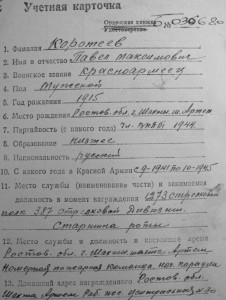 Учетная карточка
Орденская книжка Б № 030680
Удостоверение
1. Фамилия Коротеев
2. Имя и отчество Павел Максимович
3. Воинское звание Красноармеец
4. Пол Мужской
5. Год рождения 1915
6. Место рождения Ростов. обл. г. Шахты ш. Артем
7. Партийность (с какого года) чл. ВКП(б) 1944
8. Образование низшее
9. Национальность русский
10. С какого года в Красной Армии с 9-1941 по 10-1945
11. Место службы (наименование части) и занимаемая
должность в момент награждения 1273 стрелковый
полк 387 стрелковой Дивизии
Старшина роты
12. Место службы и должность в настоящее время
Ростов. обл. г. Шахты шахта Артем
пожарная команда нач. караула
13. Домашний адрес награжденного Ростов. обл.
Шахта Артем